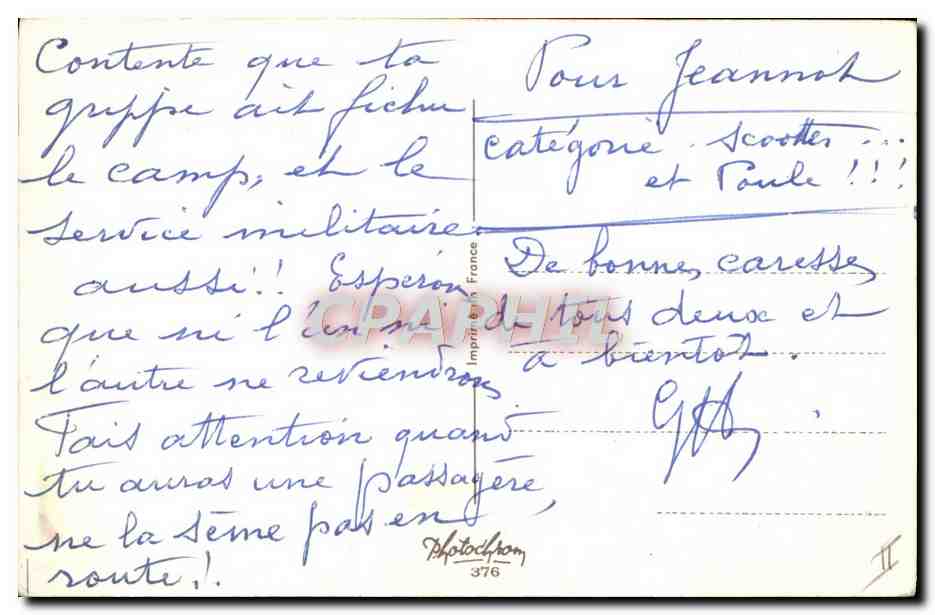 Contente que ta
grippe ait fichu
le camp, et le
service militaire
aussi!! Espérons
que ni l'un ni
l'autre ne reviendrons
Fais attention quand
tu auras une passagère,
ne la sème pas en
route!.
Pour Jeannot
catégorie. Scootter ...
et Poule!!!
De bonnes caresses
de tous deux et
à bientot.
Imprimé en France
CPARHIL
Photochrom
376
II